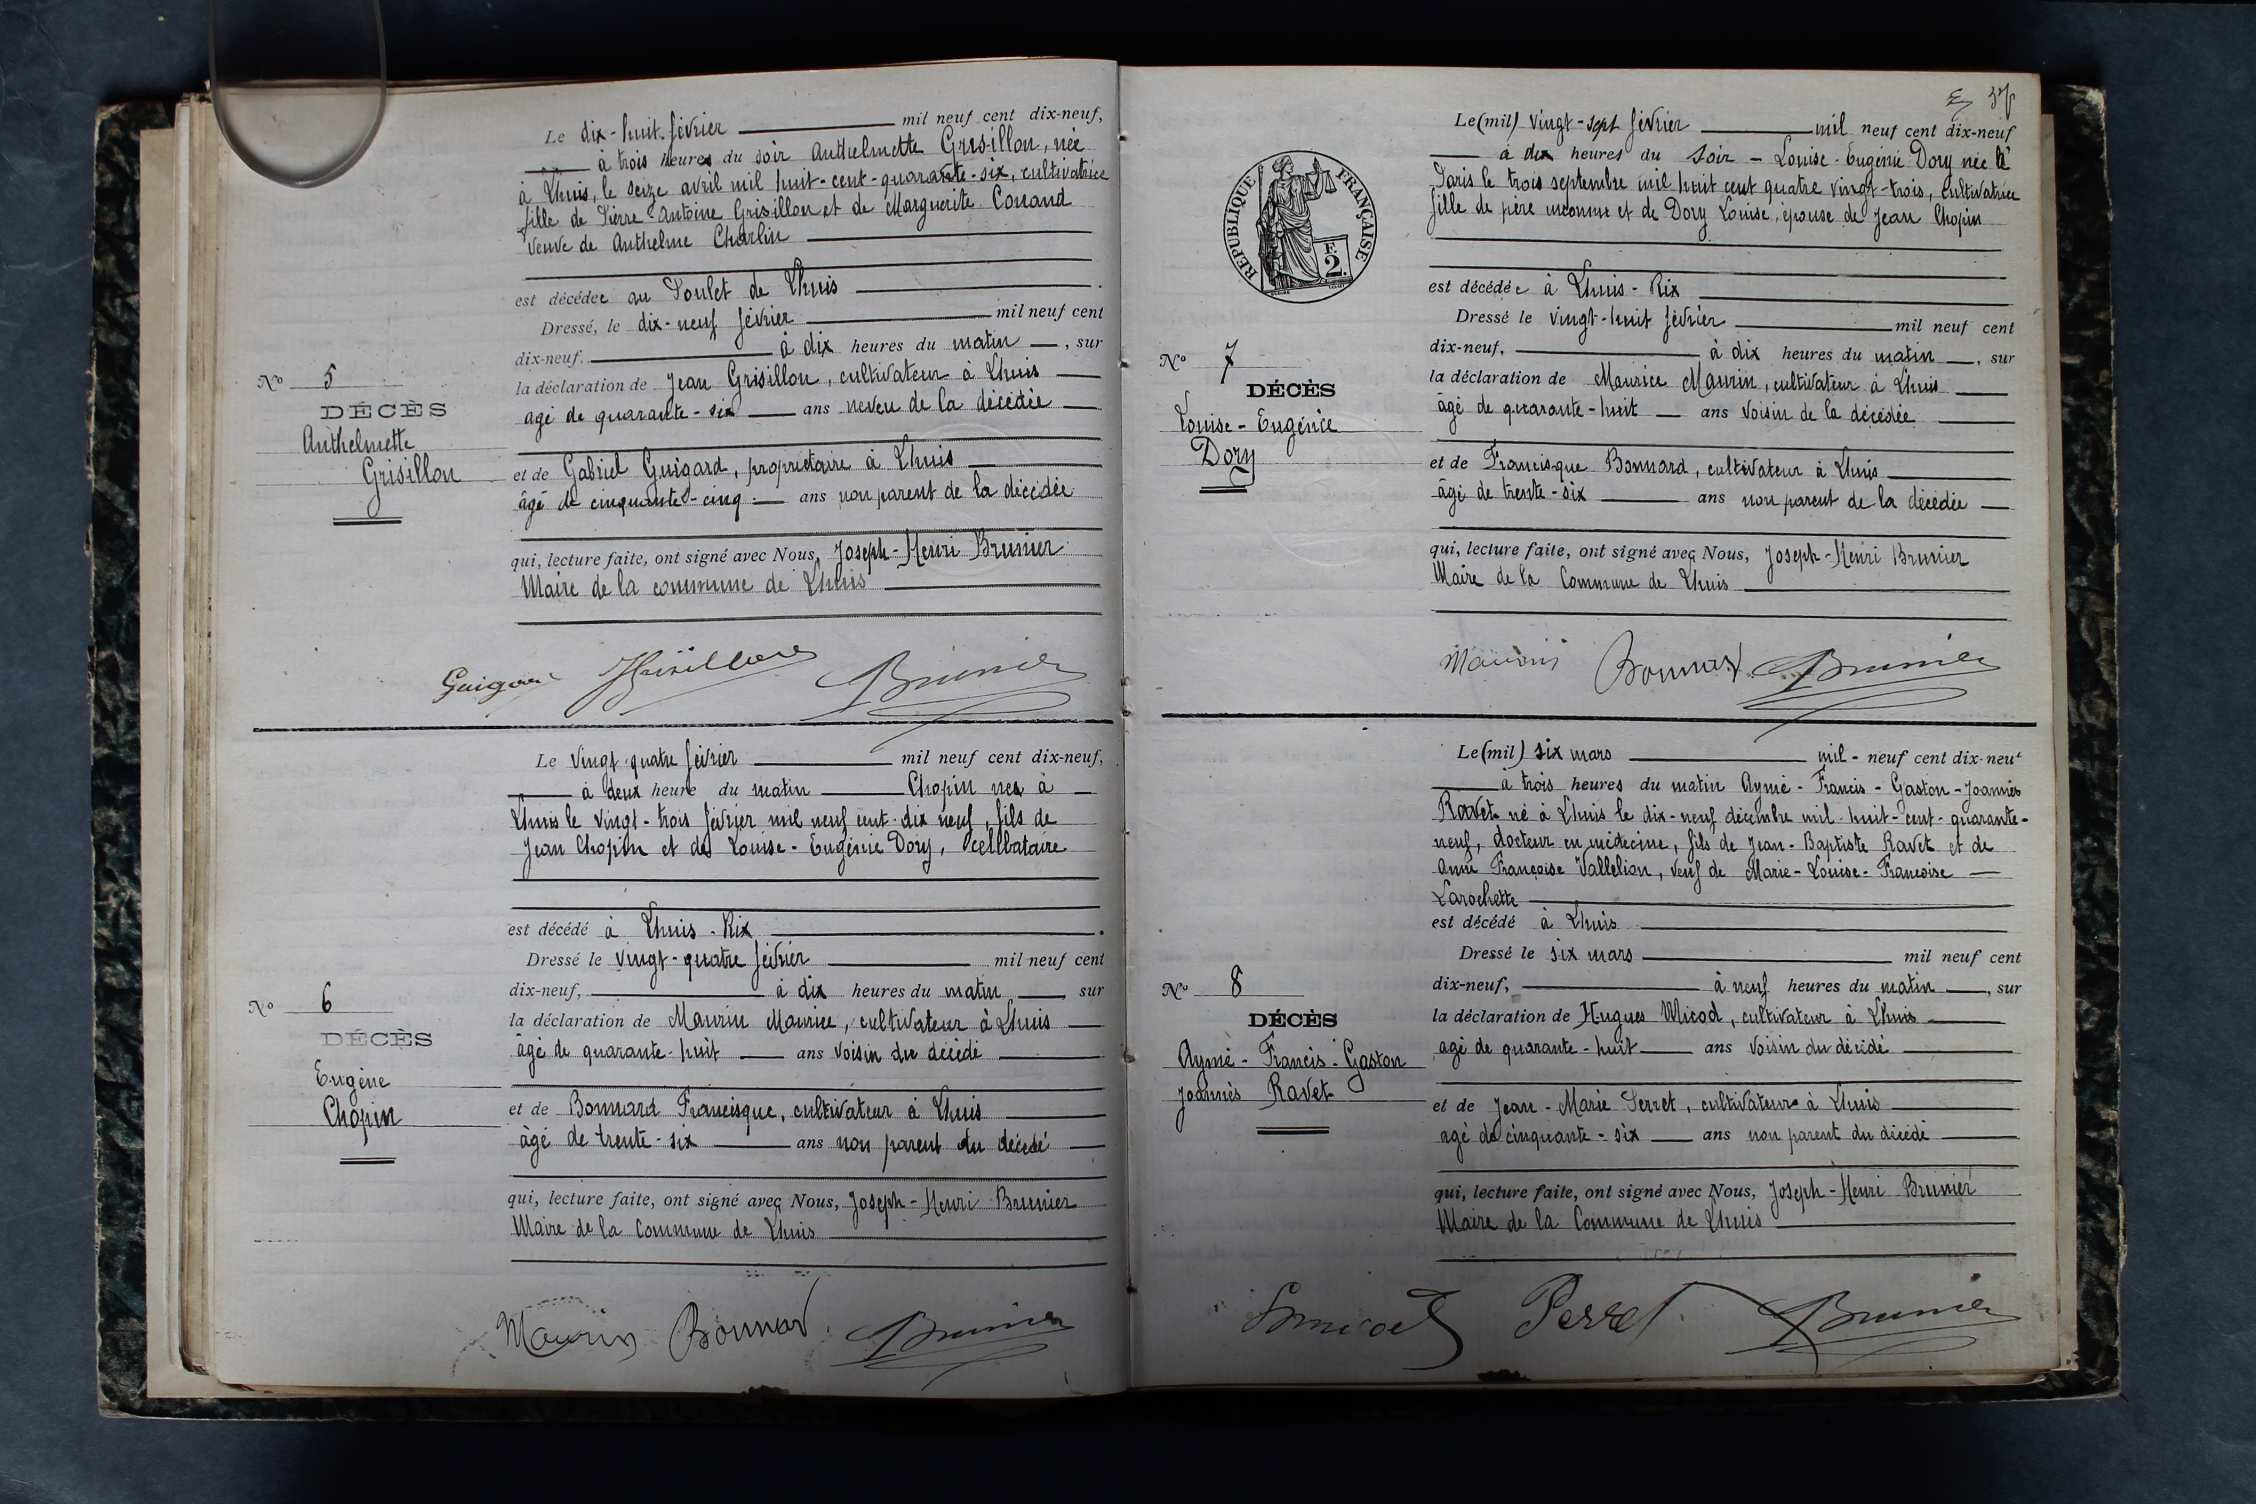 Le dix-huit février mil neuf cent dix-neuf,
à trois heures du soir Anthelmette Grisillon, née
à Lhuis, le seize avril mil huit-cent-quarante-six, cultivatrice
fille de Pierre Antoine Grisillon et de Marguerite Conand
veuve de Anthelme Charlin
est décédée au Poulet de Lhuis
Dressé, le dix-neuf février mil neuf cent
dix-neuf. à dix heures du matin, sur
la déclaration de Jean Grisillon, cultivateur à Lhuis
agé de quarante-six ans neveu de la décédée
et de Gabriel Guigard, propriétaire à Lhuis
âgé de cinquante-cinq ans non parent de la décédée
qui, lecture faite, ont signé avec Nous, Joseph-Henri Brunier
Maire de la commune de Lhuis
Nº 5
DÉCÈS
Anthelmette
Grisillon
Guigard Grisillon Brunier
Le vingt-quatre février mil neuf cent dix-neuf,
à deux heure du matin Chopin né à
Lhuis le vingt-trois février mil neuf cent-dix neuf, fils de
Jean Chopin et de Louise-Eugénie Dory, célibataire
est décédé à Lhuis-Rix
Dressé le vingt-quatre février mil neuf cent
dix-neuf, à dix heures du matin sur
la déclaration de Maurin Maurice, cultivateur à Lhuis
âgé de quarante-huit ans voisin du décédé
et de Bonnard Francisque, cultivateur à Lhuis
âgé de trente-six ans non parent du décédé
qui, lecture faite, ont signé avec Nous, Joseph-Henri Brunier
Maire de la Commune de Lhuis
Nº 6
DÉCÈS
Eugène
Chopin
Maurin Bonnard Brunier
37
REPUBLIQUE FRANÇAISE
F.
2.
Le (mil) vingt-sept février mil neuf cent dix-neuf
à dix heures du soir - Louise-Eugénie Dory née à
Paris le trois septembre mil huit cent quatre vingt-trois, cultivatrice
fille de père inconnu et de Dory Louise, épouse de Jean Chopin
est décédée à Lhuis-Rix
Dressé le vingt-huit février mil neuf cent
dix-neuf, à dix heures du matin, sur
la déclaration de Maurice Maurin, cultivateur à Lhuis
âgé de quarante-huit ans voisin de la décédée
et de Francisque Bonnard, cultivateur à Lhuis
âgé de trente-six ans non parent de la décédée
qui, lecture faite, ont signé avec Nous, Joseph-Henri Brunier
Maire de la Commune de Lhuis
Nº 7
DÉCÈS
Louise-Eugénie
Dory
Maurin Bonnard Brunier
Le (mil) six mars mil-neuf cent dix-neuf
à trois heures du matin Aymé-Francis-Gaston-Joannès
Ravet né à Lhuis le dix-neuf décembre mil-huit-cent-quarante-
neuf, docteur en médecine, fils de Jean-Baptiste Ravet et de
Anne Françoise Vallelion, veuf de Marie-Louise-Françoise
Larochette
est décédé à Lhuis
Dressé le six mars mil neuf cent
dix-neuf, à neuf heures du matin, sur
la déclaration de Hugues Micod, cultivateur à Lhuis
agé de quarante-huit ans voisin du décédé
et de Jean-Marie Perret, cultivateur à Lhuis
agé de cinquante-six ans non parent du décédé
qui, lecture faite, ont signé avec Nous, Joseph-Henri Brunier
Maire de la Commune de Lhuis
Nº 8
DÉCÈS
Aymé-Francis-Gaston
Joannès Ravet
Perret Brunier